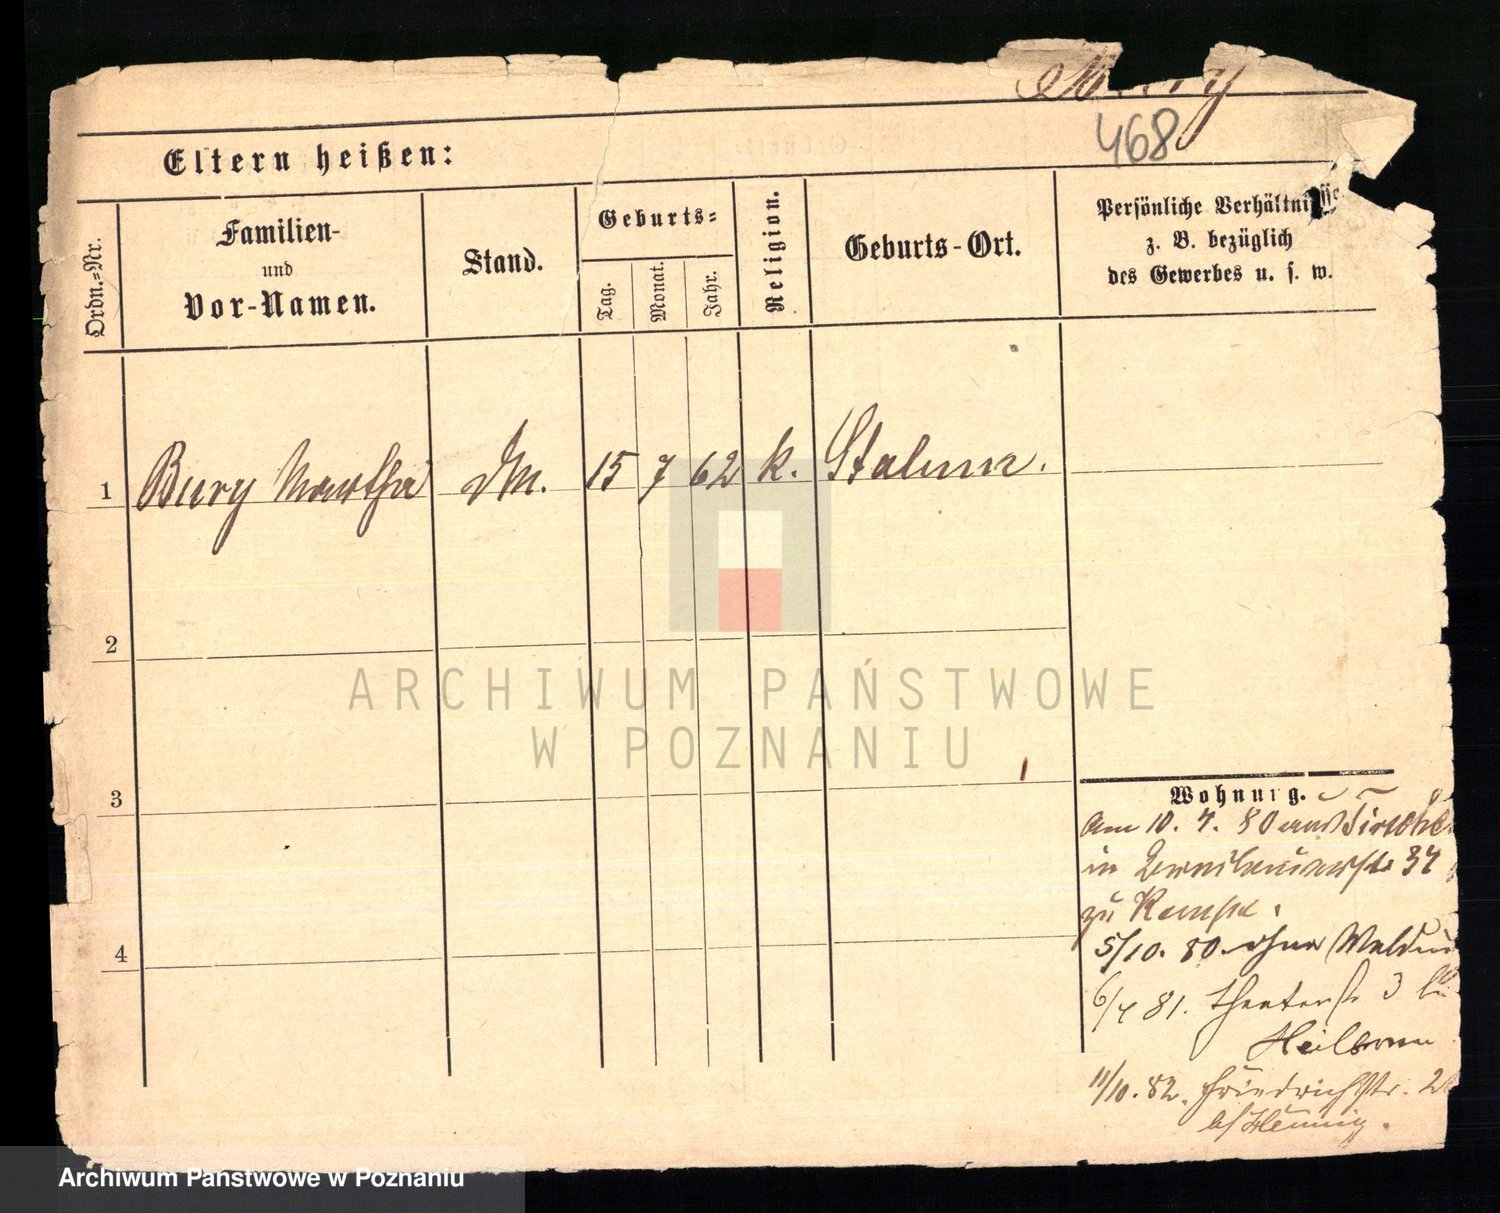 468
Eltern heißen:
Ordn.=Nr.
Familien-
und
Vor-Namen.
Stand.
Geburts=
Tag.
Monat.
Jahr.
Religion.
Geburts-Ort.
Persönliche Verhältnisse
z. B. bezüglich
des Gewerbes u. s. w.
1 Bury Martha DM. 15 7 62 k. Stalun.
2
3
4
Wohnung.
am 10. 4. 80 aus
in 34
zu
5/10. 80. ohne
6/4 81. Theaterstr 3
Heilbronn
11/10. 82. Friedrichstr. 2
b/ Hennig.
ARCHIWUM PAŃSTWOWE
W POZNANIU
Archiwum Państwowe w Poznaniu